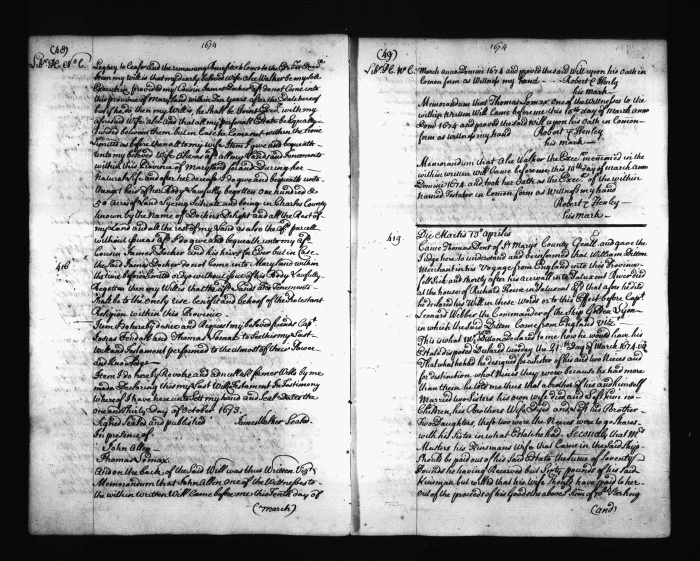 (48)
1674
Legacy to Confirmed the remaining
Item my will is that my dearly beloved wife Alce Walker be my sole
Executrix provided my Cousin James Docker aff do not Come into
this Province of Maryland within Ten years after the date hereof
But if he do then my Will is, he shall be Joynt Exec with my
aforesaid Wife Alce and that all my personall Estate be Equally
devided between them but in Case he Came not within the time
limited as before then all to my wife Item I give and bequeath
unto my beloved Wife Alce as aff all my Lands and Tenements
within this Province of Maryland for and During her
Naturall life and after her decease I do give and bequeath unto
the heirs of her Body Lawfully begotten One hundred &
50 acres of Land lying Scituate and being in Charles County
known by the Name of Dockers Delight and all the Rest of
my Lands and all the rest of my Land as also the aff parcell
without Issue as aff I do give and bequeath unto my aff
Cousin James Docker and his heirs for Ever but in Case
the said James Docker do not Come into Maryland within
the time before limited or dye without Issue of his Body Lawfully
Begotten then my Will is that the aff Lands and Tenements
shall be to the only use benefitt and behoof of the Protestant
Religion within this Province
Item I do hereby desire and Request my beloved friends Capt
and Thomas Lomax to see this my Last
Will and Testament performed to the utmost of their Power
and knowledge
Item I do hereby Revoke and all former Wills by me
made Declaring this my Last Will & Testament In Testimony
whereof I have hereunto Set my hand and Seal Dated the
one and thirty Day of October 1673.
Signed Sealed and published James Walker Sealed
In presence of
John Allen
Thomas Lomax
And on the back of the Said Will was thus Written Viz
Memorandum that John Allen One of the Witnesses to
the within written Will Came before me this Tenth day of
(March)
(49)
1674
March anno Domini 1674 and proved the said Will upon his Oath in
Comon form as Wittness my hand Robert Henly
his mark
Memorandum that Thomas Lomax One of the Witnesses to the
within Written Will Came before me this 10th day of March anno
Dom 1674 and proved the said Will upon his Oath in Comon
form as wittness my hand Robert Henley
his mark
Memorandum that Alce Walker the Execx menconed in the
within written Will Came before me this 10th day of March anno
Domini 1674 and took her Oath as the Execx of the within
Named Testator in Comon form as Wittness my hand
Robert Henley
his mark
419
Die Martis 13 aprilis
Came Thomas Dent of St Marys County Gentl and gave the
Judge here to understand and be informed that William Ditten
Merchant in his Voyage from England into this Province
fell Sick and shortly after his arrivall in Patuxent River died
at the house of Richard Keene in Patuxent aff that afore he died
he declared his Will in these words or to this Effect before Capt
Leonard Webber the Commander of the Ship Golden Lyon
in which the said Ditten Came from England Viz
This is what Mr Dittan declared to me how he would have his
Estate disposed declared Sunday the 21st Day of March 1674 viz
That what he had he designed for a brother of his and two Neices and
for distinction what Neices they were because he had more
than them he told me thus that a brother of his and himself
Married two Sisters his own wife died and left him no
Children, his Brothers Wife Dyed and left his Brother
Two Daughters, these two were the Neices were to go shares
with his Sister in what Estate he had Secondly that Mrs
Musters his Kinsmans Wife that Came in the said ship
should be paid out of his said Estate the sume of Seventy
Pounds he having Received but Sixty pounds of his said
Kinsman but willed that his wife should have paid to her
out of the proceeds of his Goods the above Sum of 70l Sterling
(and)